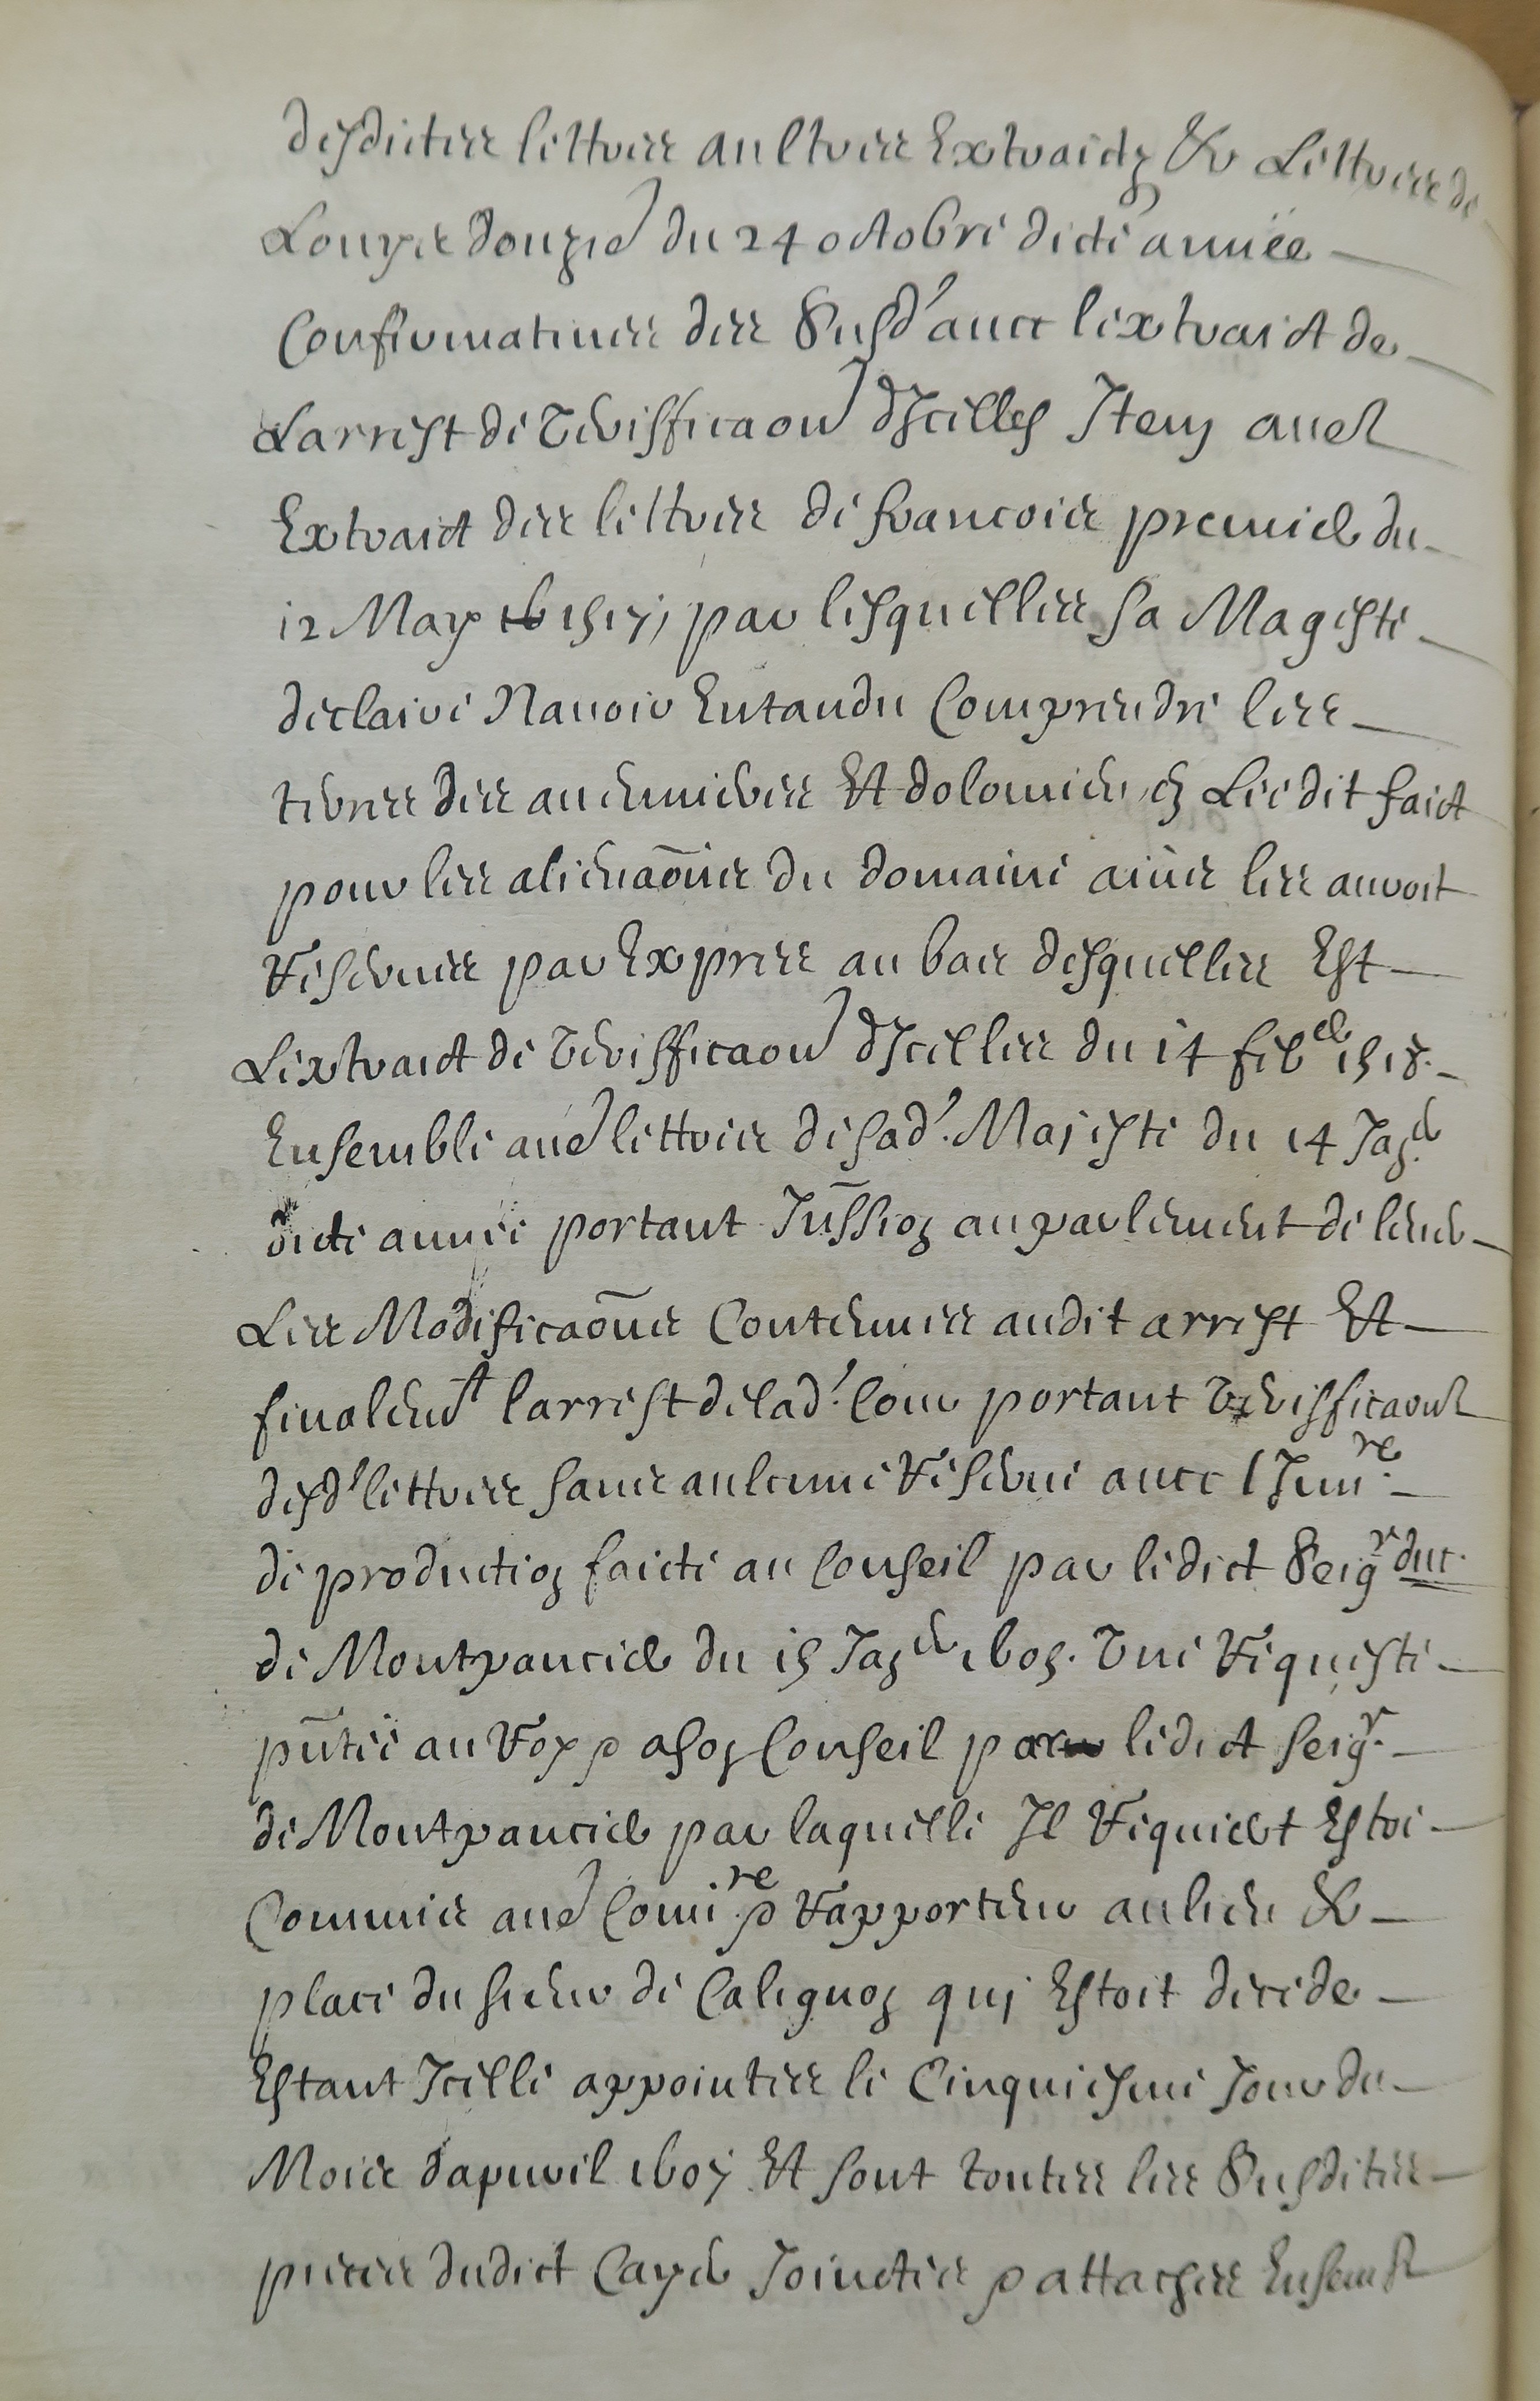 desdictes lettres aultres Extraictz Et Lettres de
Louys douzie du 24 octobre dicte année
Confirmatives des susd' avec lextraict de
Larrest de verifficaon dIcelles Item avec
Extraict des lettres de francois premier du
12 May 1517, par lesquelles sa Mageste
declaire Navoir Entandu Comprendre les
terres des auvernies Et dolomieu en Ledit faict
pour les alienaōns du domaine ains les avoit
Reservees par Expres au bas desquelles Est
Lextraict de veriffication dIcelles du 14 feber 1518.
Ensemble aue lettres de sad'. Majeste du 14 Janer
dicte année portant Jussion au parlement de lever
Les Modificaōns Contenues audit arrest Et
finalemt larrest de lad'. Cour portant veriffication
desd' lettres sans aulcune Reserve avec lInvre.
de production faicte au Conseil par ledict Seigr duc
de Montpancier du 15 Janer 1605. Une Requeste
pñtée au Roy & a son Conseil par ledict seigr.
de Montpancier par laquelle Il Requiert Estre
Commis aue Comire. & Rapporteur au lieu Et
place du sieur de Calignon qui Estoit decede
Estant Icelle appointee le Cinquiesme Jour du
Mois dapvril 1607 Et sont toutes les susdites
pieces dudict Cayer Joinctes & attachees Ensemb